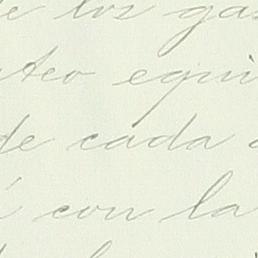 de los gas
teo equi
de cada
con la